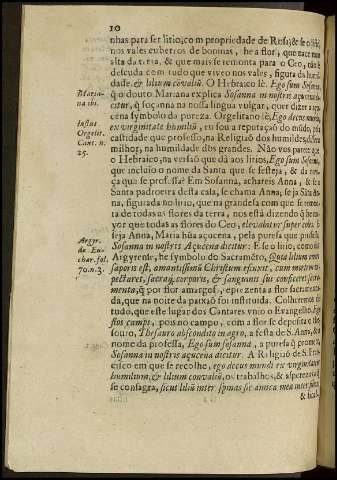 10
nhas para ser lirio, com propriedade de Rosa; & se o lirio,
nos vales cubertos de boninas, he a flor, que nace mais
alta da terra, & que mais se remonta para o Ceo, não se
descuda com tudo que viveo nos vales, figura da humil-
dade, & lilium convaliũ. O Hebraico lè. Ego Sosana,
q̃ o douto Mariana explica Sosanna in nostris açucena di-
citur, q̃ soçanna na nossa lingua vulgar, quer dizer açu-
cena symbolo da pureza. Orgelitano lè, Ego decus mundi,
ex virginitate humiliũ, eu sou a reputaçaõ do mũdo, pela
castidade que professo, na Religiaõ dos humildes,
milhor, na humildade dos grandes. Não vos parece que
o Hebraico, na versaõ que dà aos lirios, Ego sum Sosana,
que incluio o nome da Santa que se festeja, & da
ça que se professa? Em Sosanna, achareis Anna, & se a
Santa padroeira desta casa, se chama Anna, seja Santa An-
na, figurada no lirio, que na grandesa com que se remon-
ta de todas as flores da terra, nos està dizendo q̃ he
yor que todas as flores do Ceo, elevabitur super
seja Anna, Maria hũa açucena, pela puresa que
Sosanna in nostris Açucena dicitur: E se o lirio, como diz
Argyrense, he symbolo do Sacramẽto, Quia lilium
saporis est, amantissimũ Christum
pectaret, sacraq̃, corporis, & sanguinis sui conficeret sacra-
menta, q̃ por flor amargosa, representa a flor sacramenta-
da, que na noite da paixaõ foi instituida. Colhuremos de
tudo, que este lugar dos Cantares unio o Evangelho, Ego
flos campi, pois no campo, com a flor se deposita o the-
souro, Thesauro abscondito in agro, a festa de S. Ana, & o
nome da professa, Ego sum sosanna, a puresa q̃ promete,
Sosanna in nostris açucena dicitur. A Religiaõ de S. Fran-
cisco em que se recolhe, ego decus mundi ex virginitate
humilium, & lilium convaliũ, os trabalhos, & asperezas a q̃
se consagra, sicut liliũ inter spinas sic amica mea inter filias
&
Maria-
na ibi.
Instut
Orgelit.
Cant. n.
25.
Argyr.
de Eu-
char. fol.
70. n. 3.